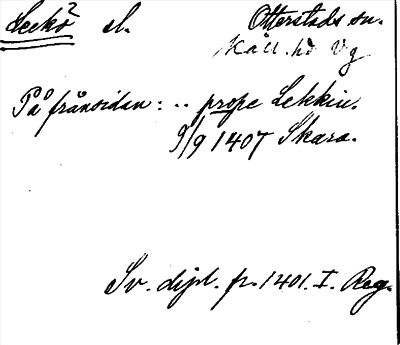 Leckö² sl. Otterstads sn.
Kåll. hd Vg
På frånsidan: .. prope Lekkiu.
9/9 1407 Skara.
Sv. dipl. fr. 1401. I. Reg.